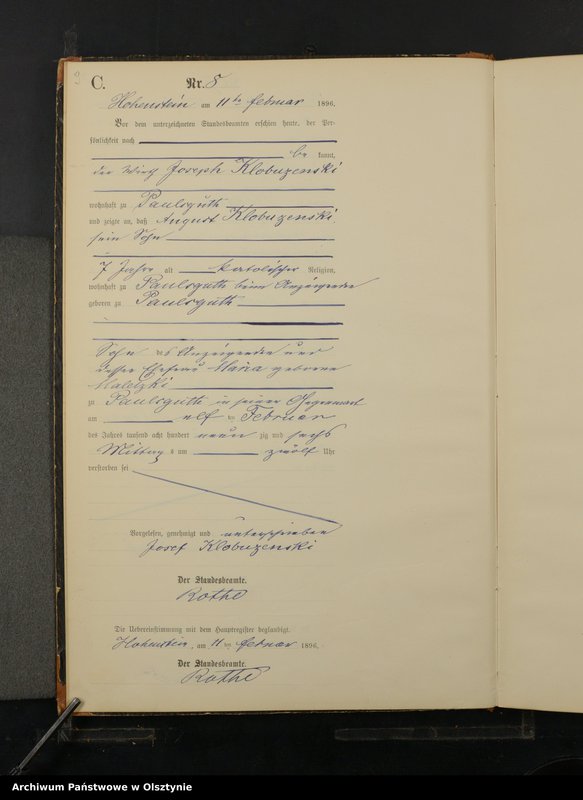 9
C.
Nr. 5
Hohenstein am 11ten Februar 1896.
Vor dem unterzeichneten Standesbeamten erschien heute, der Per-
sönlichkeit nach
be kannt,
der Wirth Joseph Klobuzenski
wohnhaft zu Paulsguth
und zeigte an, daß August Klobuzenski
sein Sohn
7 Jahre alt katolischer Religion,
wohnhaft zu Paulsguth beim Anzeigenden
geboren zu Paulsguth
Sohn des Anzeigenden und
dessen Ehefrau Maria geborene
zu Paulsguth in seiner Gegenwart
am elf ten Februar
des Jahres tausend acht hundert neun zig und sechs
Mittag s um zwölf Uhr
verstorben sei
Vorgelesen, genehmigt und unterschrieben
Josef Klobuzenski
Der Standesbeamte.
Rothe
Die Uebereinstimmung mit dem Hauptregister beglaubigt.
Hohenstein, am 11 ten Februar 1896.
Der Standesbeamte.
Rothe
Archiwum Państwowe w Olsztynie